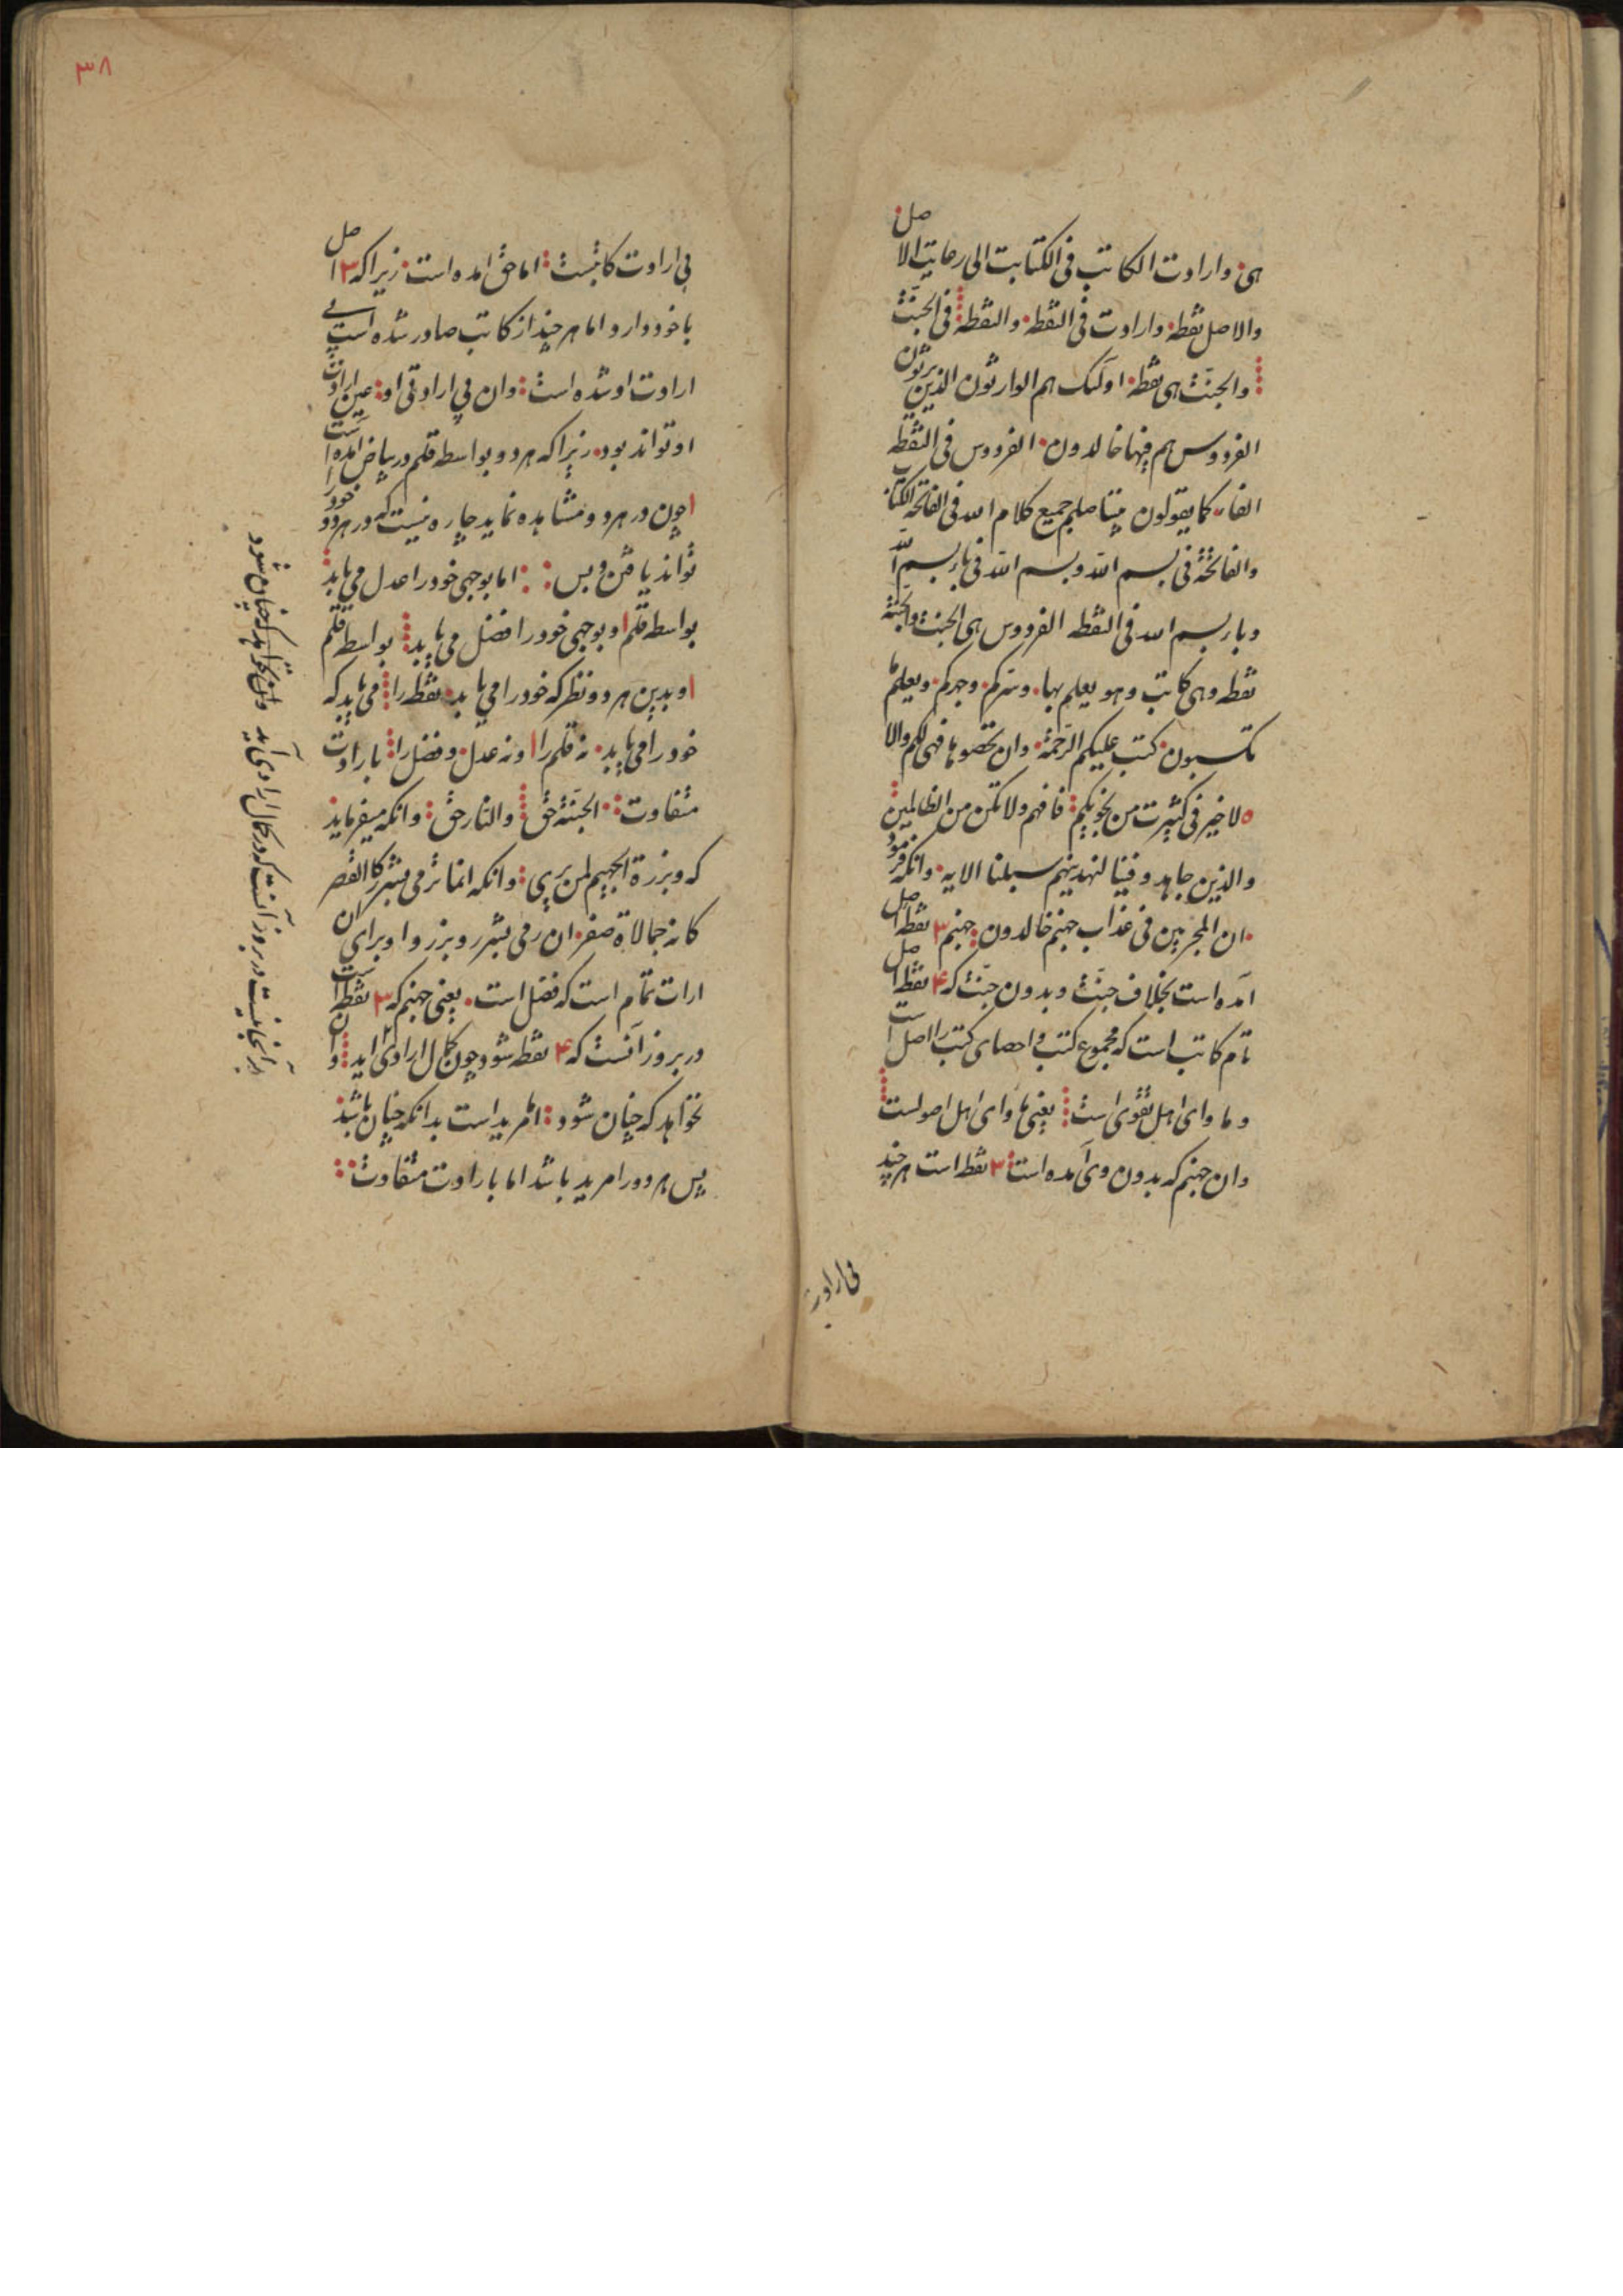 هی وارادت الکاتب فی الکتابت الی رعایت الاصل
والاصل نقطه وارادت فی النقطه والنقطه فی الجنت
والجنت هی نقطه اولئک هم الوارثون الذین یرثون
الفردوس هم فیها خالدون الفردوس فی النقطه
کما یقولون جمیع کلام الله فی الفاتحة الکتاب
والفاتحة فی بسم الله وبسم الله فی باء بسم الله
وباء بسم الله فی النقطه الفردوس هی الجنت والجنة
نقطه وهی کاتب وهو یعلم بها وسرکم وجهرکم ویعلم ما
تکسبون کتب علیکم الرحمة وان تحصوها فهی لکم والا
لا خیر فی کثیرت من نجویکم فافهم ولا تکن من الظالمین
والذین جاهدوا فینا لنهدینهم سبلنا الایه وانکه فرمود
ان المجرمین فی عذاب جهنم خالدون جهنم ۳ نقطه اصل
آمده است بخلاف جنت وبدون جنت که ۴ نقطه اصل
نام کاتب است که مجموع کتب واحصای کتب را اصل است
وماوای اهل تقوی است یعنی ماوای اهل اصولست
وان جهنم که بدون وی آمده است ۳ نقط است هر چند
بی ارادت
۳۸
بی ارادت کاتبست اما حق امده است زیرا که ۳ اصل
با خود دارد اما هر چند از کاتب صادر شده است بی
ارادت او شده است وان بی ارادتی او عین ارادت
او تواند بود زیرا که هر دو بواسطه قلم در بیاض امده است
چون در هر دو مشاهده نماید چاره نیست که در هر دو خود را
تواند یافتن وبس اما بوجهی خود را عدل می یابد
بواسطه قلم او بوجهی خود را فضل می یابد بواسطه قلم
او بدین هر دو نظر که خود را می یابد نقطه را می یابد که
خود را می یابد نه قلم را و نه عدل وفضل را بارادت
متفاوت الجنة حق والنار حق وانکه میفرماید
که وبرزة الجحیم لمن یری وانکه انها ترمی بشرر کالقصر
کانه جمالاة صفر ان رمی بشرر وبرزوا او برای ان
ارات تمام است که فضل است یعنی جهنم که ۳ نقطه است
در بروز آنست که ۴ نقطه شود چون کمال ارادی اید وان
نخواهد که چنان شود امر بد است بدانکه چنان باشد
پس هر دو را مرید باشد اما بارادت متفاوت
در انجا نیست در بروز آنست که در کمال ارادی آید وان نخواهد که چنان شود